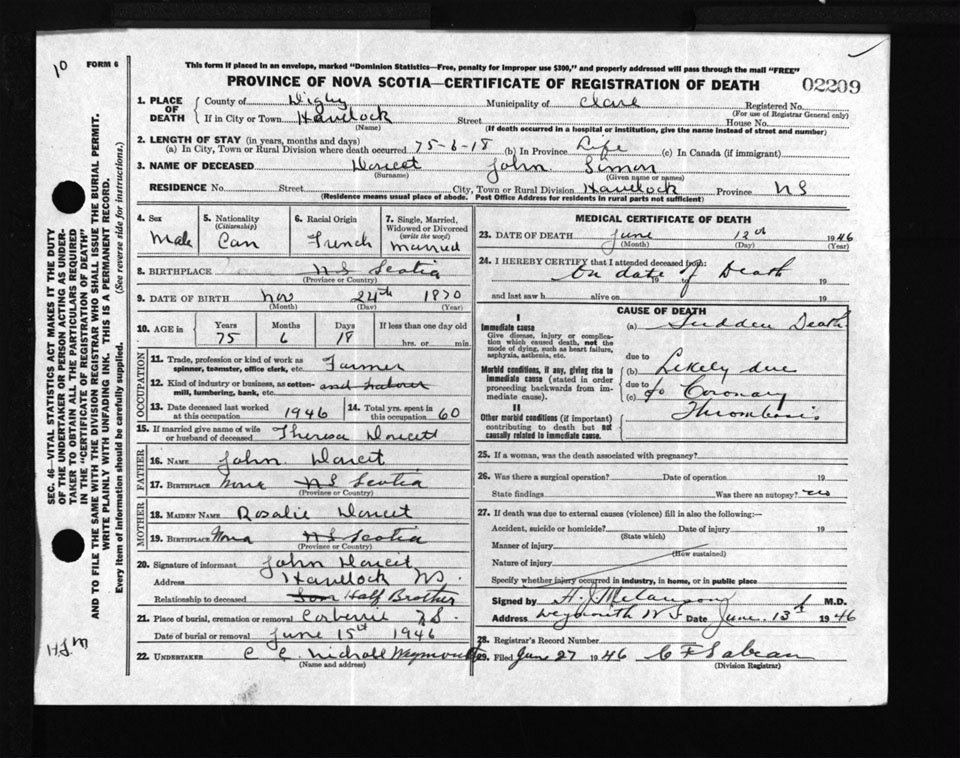 10
FORM 6
This form if placed in an envelope, marked "Dominion Statistics—Free, penalty for improper use $300," and properly addressed will pass through the mail "FREE"
PROVINCE OF NOVA SCOTIA—CERTIFICATE OF REGISTRATION OF DEATH
02209
1. PLACE OF DEATH
County of Digby Municipality of Clare Registered No.
(For use of Registrar General only)
If in City or Town Havelock Street House No.
(Name) (If death occurred in a hospital or institution, give the name instead of street and number)
2. LENGTH OF STAY (in years, months and days)
(a) In City, Town or Rural Division where death occurred 75-6-18 (b) In Province Life (c) In Canada (if immigrant)
3. NAME OF DECEASED Doucet John Simon
(Surname) (Given name or names)
RESIDENCE No. Street City, Town or Rural Division Havelock Province NS
(Residence means usual place of abode. Post Office Address for residents in rural parts not sufficient)
4. Sex
Male
5. Nationality
(Citizenship)
Can
6. Racial Origin
French
7. Single, Married, Widowed or Divorced
(write the word)
Married
8. BIRTHPLACE N S Scotia
(Province or Country)
9. DATE OF BIRTH Nov 24th 1870
(Month) (Day) (Year)
10. AGE in Years Months Days If less than one day old
75 6 18 hrs. or min.
OCCUPATION
11. Trade, profession or kind of work as spinner, teamster, office clerk, etc. Farmer
12. Kind of industry or business, as cotton-mill, lumbering, bank, etc.
13. Date deceased last worked at this occupation 1946
14. Total yrs. spent in this occupation 60
15. If married give name of wife or husband of deceased Theresa Doucett
FATHER
16. NAME John Doucit
17. BIRTHPLACE Nova N S Scotia
(Province or Country)
MOTHER
18. MAIDEN NAME Rosalie Doucet
19. BIRTHPLACE Nova N S Scotia
(Province or Country)
20. Signature of informant John Doucit
Address Havelock NS.
Relationship to deceased Son Half Brother
21. Place of burial, cremation or removal Corberrie N.S.
Date of burial or removal June 15th 1946
22. UNDERTAKER C C Nicholl Weymouth
(Name and address)
MEDICAL CERTIFICATE OF DEATH
23. DATE OF DEATH June 12th 1946
(Month) (Day) (Year)
24. I HEREBY CERTIFY that I attended deceased from:
On date of Death
19 to 19
and last saw h alive on 19
CAUSE OF DEATH
I
Immediate cause
Give disease, injury or complication which caused death, not the mode of dying, such as heart failure, asphyxia, asthenia, etc.
(a) Sudden Death
due to
Morbid conditions, if any, giving rise to immediate cause (stated in order proceeding backwards from immediate cause).
(b) Likely due
due to
(c) to Coronary
Thrombosis
II
Other morbid conditions (if important) contributing to death but not causally related to immediate cause.
25. If a woman, was the death associated with pregnancy?
26. Was there a surgical operation? Date of operation 19
State findings Was there an autopsy? no
27. If death was due to external causes (violence) fill in also the following:—
Accident, suicide or homicide? Date of injury 19
(State which)
Manner of injury
(How sustained)
Nature of injury
Specify whether injury occurred in industry, in home, or in public place
Signed by H. J. Melanson M.D.
Address Weymouth N S Date June 13 1946
28. Registrar's Record Number
29. Filed June 27 1946 C F Sabean
(Division Registrar)
SEC. 46—VITAL STATISTICS ACT MAKES IT THE DUTY
OF THE UNDERTAKER OR PERSON ACTING AS UNDER-
TAKER TO OBTAIN ALL THE PARTICULARS REQUIRED
IN THE "CERTIFICATE OF REGISTRATION OF DEATH"
AND TO FILE THE SAME WITH THE DIVISION REGISTRAR WHO SHALL ISSUE THE BURIAL PERMIT.
WRITE PLAINLY WITH UNFADING INK. THIS IS A PERMANENT RECORD.
Every item of information should be carefully supplied. (See reverse side for instructions.)